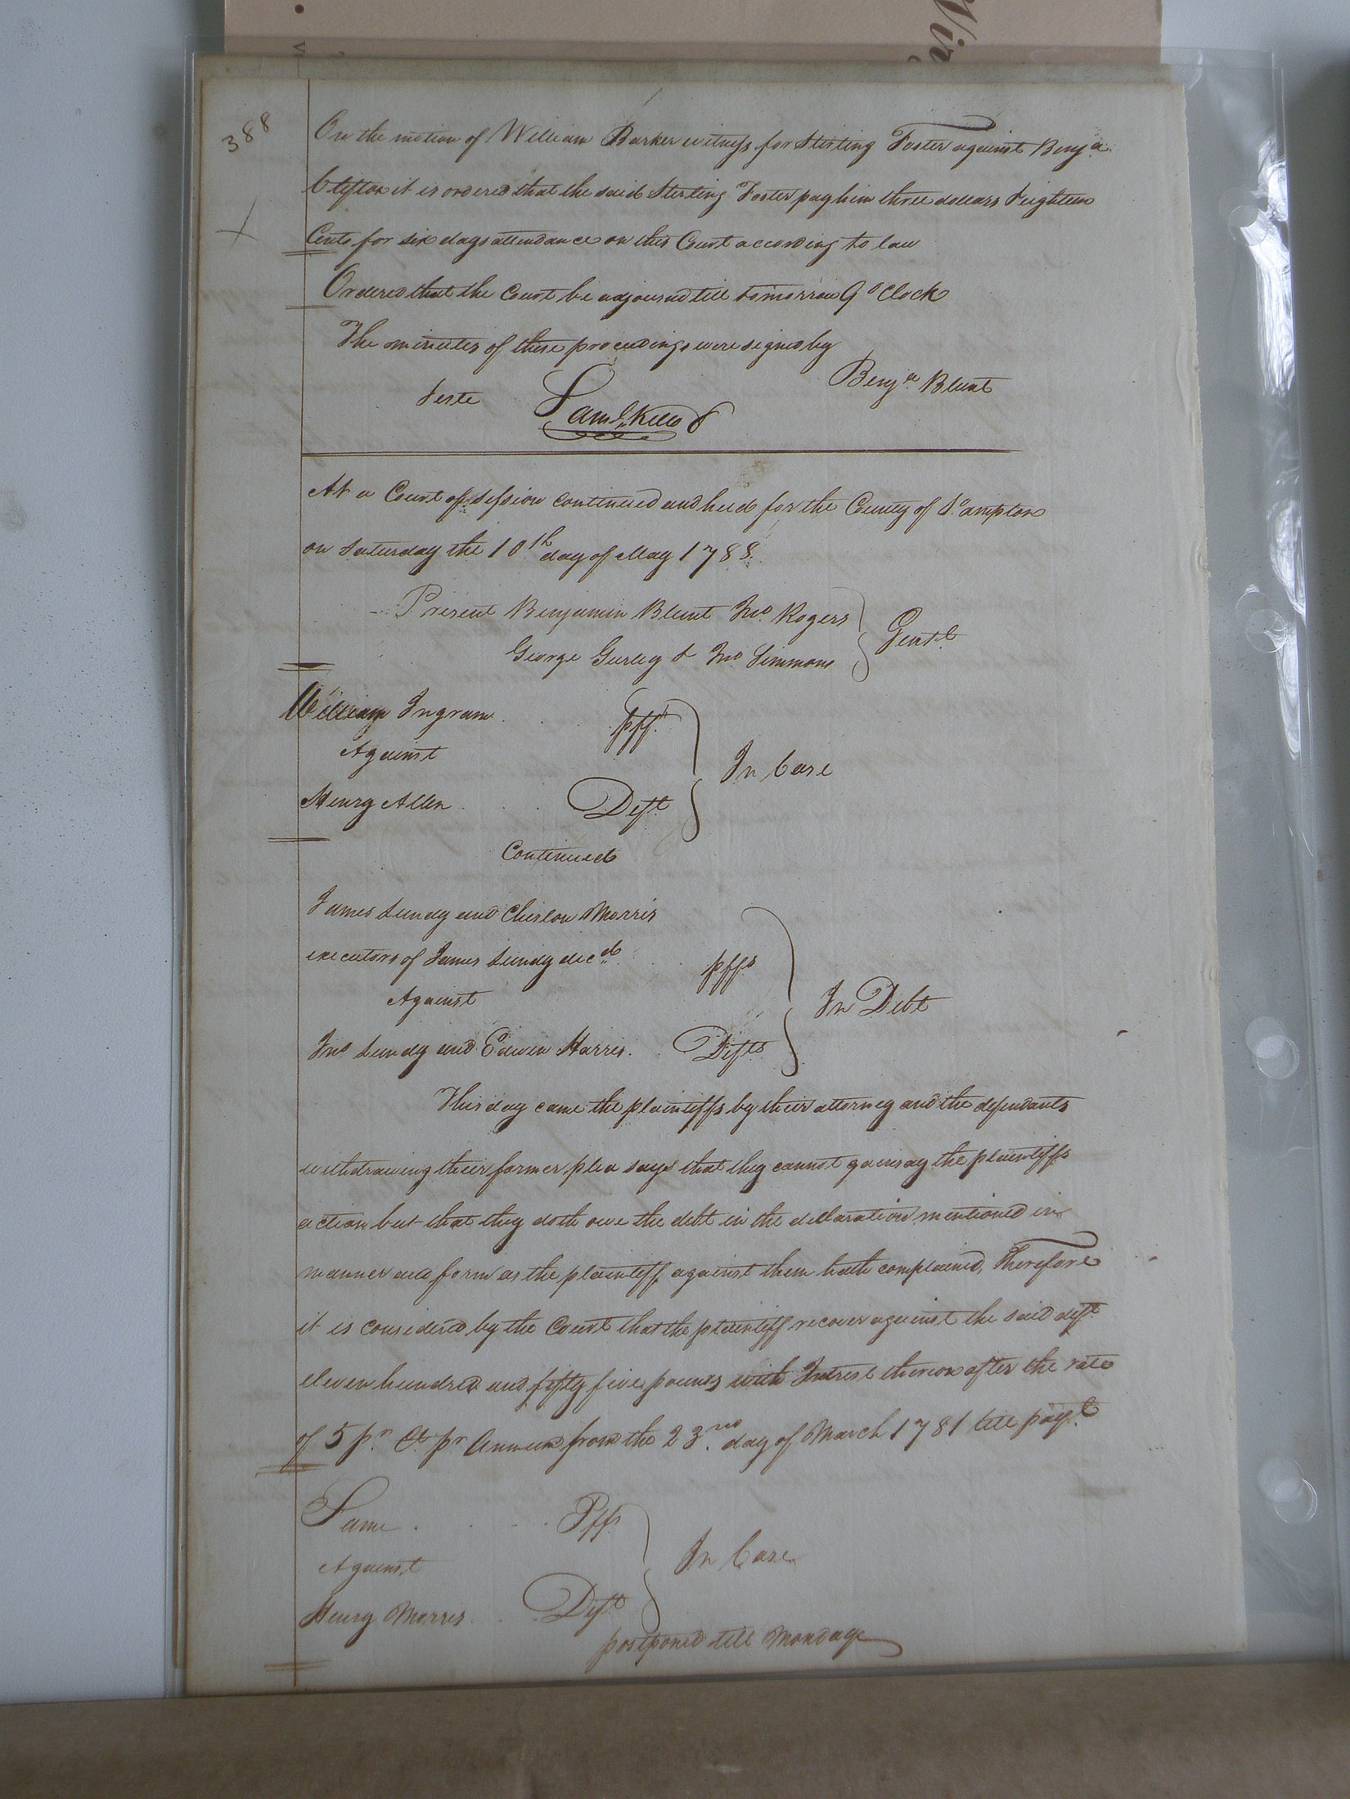 Vir
388
On the motion of William Barker witness for Sterling Foster against Benja.
Clifton it is ordered that the said Sterling Foster pay him three dollars & eighteen
Cents for six days attendance on this Court according to law
Ordered that the Court be adjourned till tomorrow 9 oClock
The minutes of these proceedings were signed by
Benja Blunt
Teste Saml. Kello
At a Court of Session continued and held for the County of So.ampton
on Saturday the 10th day of May 1788.
Present Benjamin Blunt Jno. Rogers
George Gurley & Jno Simmons Gentl.
William Ingram pff.
Against In Case
Henry Allen Deft
Continued
James Lundy and Morris
executors of James Lundy decd. pffs
Against In Debt
Jno Lundy and Edwin Harris. Defts
This day came the plaintiffs by their attorney and the defendants
withdrawing their former plea says that they cannot gainsay the plaintiffs
action but that they doth owe the debt in the declaration mentioned in
manner and form as the plaintiff against them hath complained, Therefore
it is considered by the Court that the plaintiff recover against the said deft.
eleven hundred and fifty five pounds with Interest thereon after the rate
of 5 pr. Ct pr Annum from the 23.rd day of March 1781 till payt.
Same Pffs
Against In Case
Henry Morris Deft
postponed till Monday